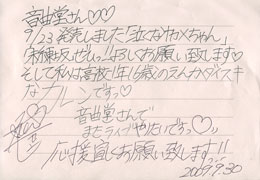 音曲堂さん♡♡
9/23発売しました「泣くなわんちゃん」
「練坂」ぜひっ!!よろしくお願い致します♡
そして私は高校1年16歳のえんかダイスキ
なガールですっ♡
音曲堂さんで
またライブやりたいですっ♡
応援宜しくお願い致します!!
2009.9.30